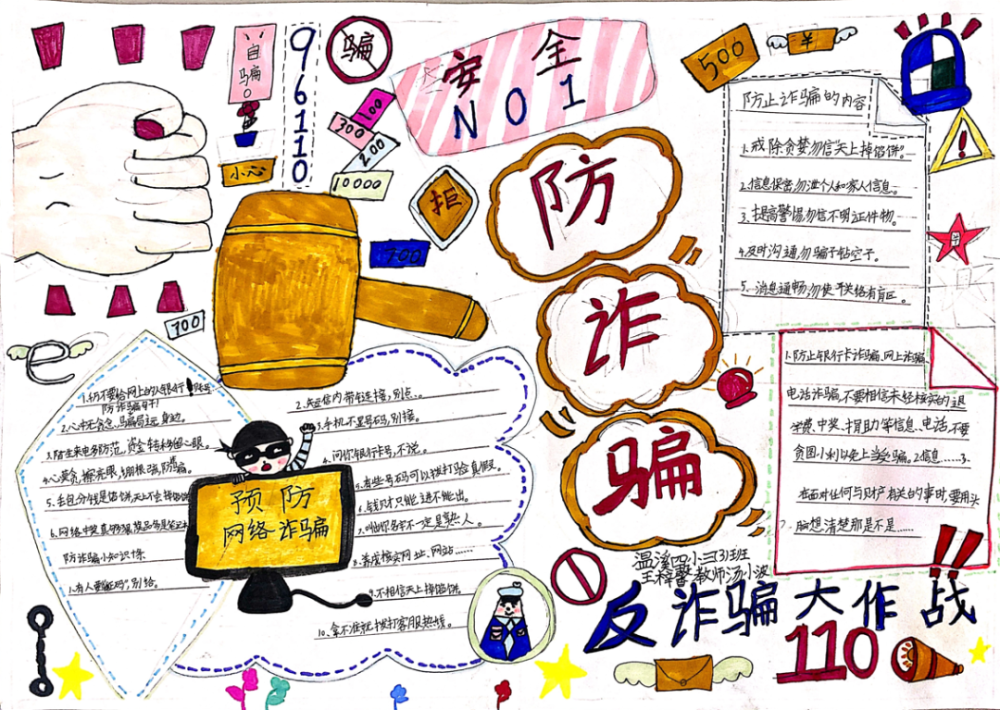 自骗
96110
骗
安全
NO1
小心
100
300
200
10000
拒
700
700
500
¥
防
诈
骗
防止诈骗的内容
1.戒除贪婪勿信“天上掉馅饼”。
2.信息保密,勿泄个人和家人信息。
3.提高警惕勿信不明证件物。
4.及时沟通,勿骗子钻空子。
5.消息通畅,勿使联络有盲区。
1.防止银行卡诈骗、网上诈骗、
电话诈骗,不要相信未经核实的退
费、中奖、捐助等信息、电话,不要
贪图小利以免上当受骗。2.信息……3.
在面对任何与财产相关的事时,要用头
脑想清楚那是不是……
e
1.仍不要给网上的认银行!账号
防诈骗
2.心中无贪念,骗局远身边。
3.陌生来电多防范,资金转移留心眼。
5.丢包分钱是馅饼,天上不会掉馅饼
防诈骗小知识
1.有人要“验证码”,别给。
2.短信内带链接,别点。
3.手机不显号码,别接。
4.问你银行卡号,不说。
5.有些号码可以拨打验真假。
6.钱财只能进不能出。
7.叫你名字不一定是熟人。
8.网址、网站……
9.不相信天上掉馅饼
10.拿不准就拨打客服热线。
预防
网络诈骗
温溪四小三3班
王梓馨 教师汤小波
反诈骗大作战!!
110